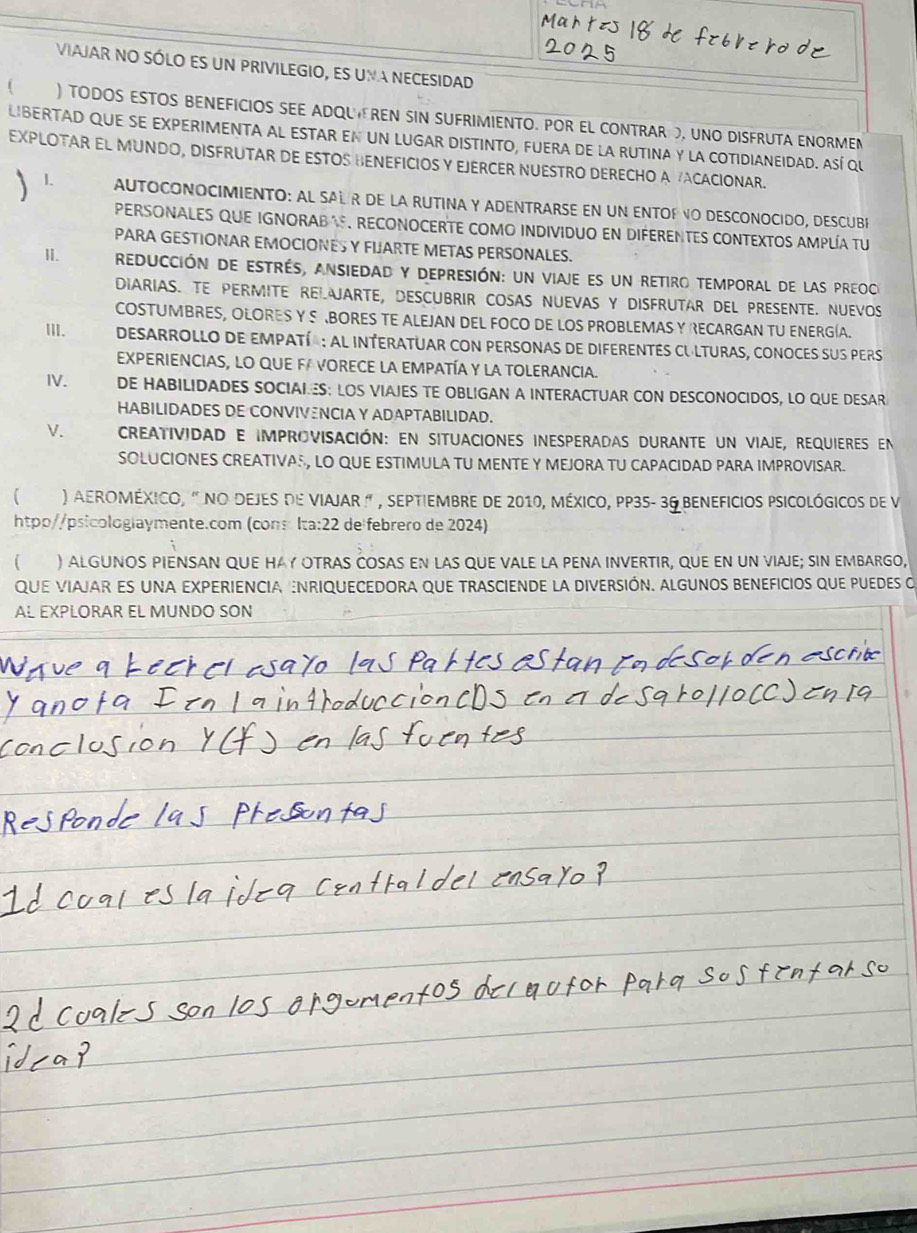 Martes 18 de febrero de
2025
VIAJAR NO SÓLO ES UN PRIVILEGIO, ES UNA NECESIDAD
( ) TODOS ESTOS BENEFICIOS SEE ADQUIEREN SIN SUFRIMIENTO. POR EL CONTRARIO, UNO DISFRUTA ENORMEN
LIBERTAD QUE SE EXPERIMENTA AL ESTAR EN UN LUGAR DISTINTO, FUERA DE LA RUTINA Y LA COTIDIANEIDAD. ASÍ QU
EXPLOTAR EL MUNDO, DISFRUTAR DE ESTOS BENEFICIOS Y EJERCER NUESTRO DERECHO A VACACIONAR.
) I. AUTOCONOCIMIENTO: AL SALIR DE LA RUTINA Y ADENTRARSE EN UN ENTORNO DESCONOCIDO, DESCUBR
PERSONALES QUE IGNORABAS. RECONOCERTE COMO INDIVIDUO EN DIFERENTES CONTEXTOS AMPLÍA TU
PARA GESTIONAR EMOCIONES Y FIJARTE METAS PERSONALES.
II. REDUCCIÓN DE ESTRÉS, ANSIEDAD Y DEPRESIÓN: UN VIAJE ES UN RETIRO TEMPORAL DE LAS PREOC
DIARIAS. TE PERMITE RELAJARTE, DESCUBRIR COSAS NUEVAS Y DISFRUTAR DEL PRESENTE. NUEVOS
COSTUMBRES, OLORES Y SABORES TE ALEJAN DEL FOCO DE LOS PROBLEMAS Y RECARGAN TU ENERGÍA.
III. DESARROLLO DE EMPATÍA: AL INTERATUAR CON PERSONAS DE DIFERENTES CULTURAS, CONOCES SUS PERS
EXPERIENCIAS, LO QUE FAVORECE LA EMPATÍA Y LA TOLERANCIA.
IV. DE HABILIDADES SOCIALES: LOS VIAJES TE OBLIGAN A INTERACTUAR CON DESCONOCIDOS, LO QUE DESAR
HABILIDADES DE CONVIVENCIA Y ADAPTABILIDAD.
V. CREATIVIDAD E IMPROVISACIÓN: EN SITUACIONES INESPERADAS DURANTE UN VIAJE, REQUIERES EN
SOLUCIONES CREATIVAS, LO QUE ESTIMULA TU MENTE Y MEJORA TU CAPACIDAD PARA IMPROVISAR.
( ) AEROMÉXICO, " NO DEJES DE VIAJAR " , SEPTIEMBRE DE 2010, MÉXICO, PP35- 36 BENEFICIOS PSICOLÓGICOS DE V
htpp//psicologiaymente.com (consulta:22 de febrero de 2024)
( ) ALGUNOS PIENSAN QUE HAY OTRAS COSAS EN LAS QUE VALE LA PENA INVERTIR, QUE EN UN VIAJE; SIN EMBARGO,
QUE VIAJAR ES UNA EXPERIENCIA ENRIQUECEDORA QUE TRASCIENDE LA DIVERSIÓN. ALGUNOS BENEFICIOS QUE PUEDES O
AL EXPLORAR EL MUNDO SON
a el esayo las Partes estan en desorden escribe
y anota I en la introduccion (D) en el desarollo (C) en la
conclusion y (f) en las fuentes
Responde las Preguntas
1d cual es la idea central del ensayo?
2d cuales son los argumentos del autor para sustentar so
idea?